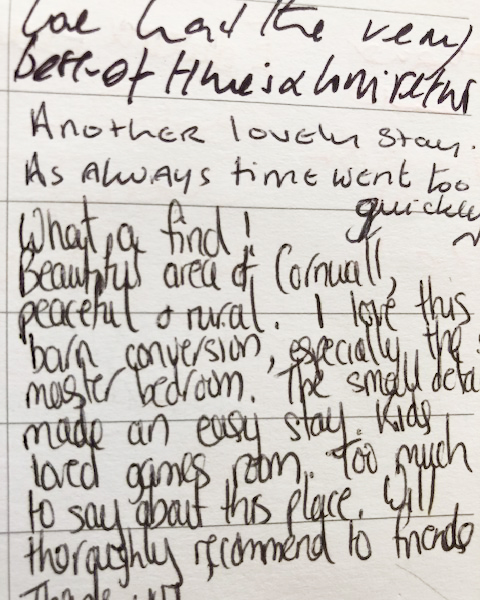 we had the very
best of times & will return
Another lovely stay.
As always time went too
quickly
What a find!
Beautiful area of Cornwall,
peaceful & rural. I love this
barn conversion, especially the
master bedroom. The small deta
made an easy stay. Kids
loved games room. Too much
to say about this place. Will
thoroughly recommend to friends